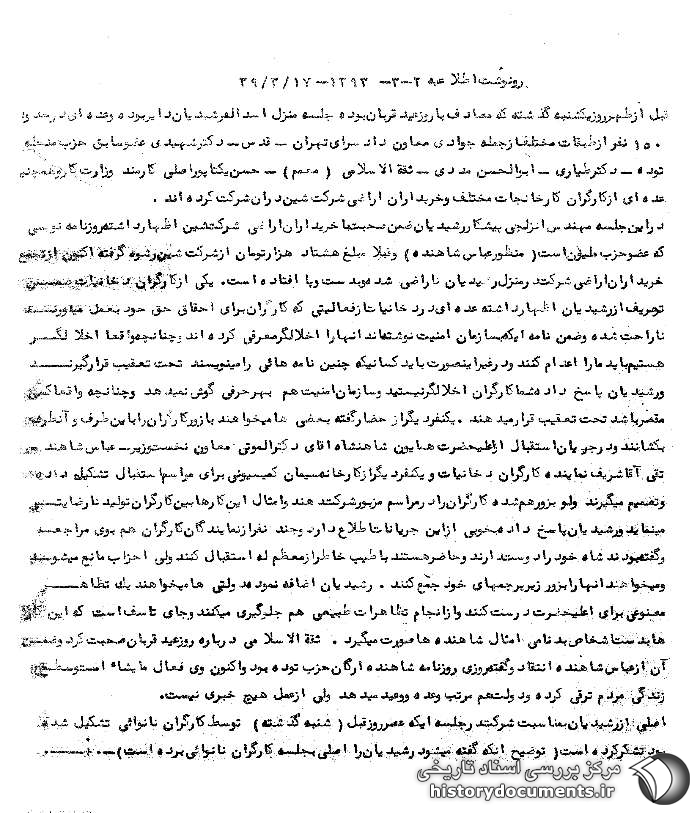 رونوشت اطلاعیه ۲-۳- ۱۲۹۳-۳۹/۳/۱۷
قبل از ظهر روز یکشنبه گذشته که مصادف با روز عید قربان بوده جلسه منزل اسداله رشیدیان دایر بوده و عده ای در حدود
۱۵۰ نفر از طبقات مختلف از جمله جوادی معاون دادسرای تهران - قدس - دکتر شهیدی عضو سابق حزب منحله
توده - دکتر طیاری - ابوالحسن مددی - ثقة الاسلامی ( معمم ) - حسن یکتاپور اصلی کارمند وزارت کار و همچنین
عده ای از کارگران کارخانجات مختلف و خریداران اراضی شرکت شین در آن شرکت کرده اند .
در این جلسه مهندس انزلچی پیشکار رشیدیان ضمن صحبت با خریداران اراضی شرکت شین اظهار داشته روزنامه نویسی
که عضو حزب ملیون است ( منظور عباس شاهنده ) و قبلا مبلغ هشتاد هزار تومان از شرکت شین رشوه گرفته اکنون از تجمع
خریداران اراضی شرکت در منزل رشیدیان ناراضی شده و بدست و پا افتاده است . یکی از کارگران دخانیات ضمن
تعریف از رشیدیان اظهار داشته عده ای در دخانیات از فعالیتی که کارگران برای احقاق حق خود بعمل میاورند
ناراحت شده و ضمن نامه ایکه بسازمان امنیت نوشته اند آنها را اخلالگر معرفی کرده اند و چنانچه واقعا اخلالگر
هستیم باید ما را اعدام کنند و در غیر اینصورت باید کسانیکه چنین نامه هائی را مینویسند تحت تعقیب قرار گیرند
و رشیدیان پاسخ داده شما کارگران اخلالگر نیستید و سازمان امنیت هم بهر حرفی گوش نمیدهد و چنانچه واقعا کسی
مقصر باشد تحت تعقیب قرار میدهند . یکنفر دیگر از حضار گفته بعضی ها میخواهند با زور کارگران را باین طرف و آنطرف
بکشانند و در جریان استقبال از اعلیحضرت همایون شاهنشاه آقای دکتر الموتی معاون نخست وزیر - عباس شاهنده
تقی آقا شریف نماینده کارگران دخانیات و یکنفر دیگر از کارخانه سیمان کمیسیونی برای مراسم استقبال تشکیل داده
و تصمیم میگیرند ولو بزور هم شده کارگران را در مراسم مزبور شرکت دهند و امثال این کارها بین کارگران تولید نارضایتی
مینماید و رشیدیان پاسخ داده بخوبی از این جریانات اطلاع دارد و چند نفر از نمایندگان کارگران هم بوی مراجعه
و گفته بودند شاه خود را دوست دارند و حاضر هستند با طیب خاطر از معظم له استقبال کنند ولی احزاب مانع میشوند
و میخواهند آنها را بزور زیر پرچمهای خود جمع کنند . رشیدیان اضافه نموده دولتی ها میخواهند یک تظاهر
مصنوعی برای اعلیحضرت درست کنند و از انجام تظاهرات طبیعی هم جلوگیری میکنند و جای تاسف است که این
ها بدست اشخاص بدنامی امثال شاهنده ها صورت میگیرد . ثقة الاسلامی درباره روز عید قربان صحبت کرد و ضمن
آن از عباس شاهنده انتقاد و گفته روزی روزنامه شاهنده ارگان حزب توده بود و اکنون وی فعال مایشاء است و سطح
زندگی مردم ترقی کرده و دولت هم مرتب وعده و وعید میدهد ولی از عمل هیچ خبری نیست .
اصلی از رشیدیان بمناسبت شرکت در جلسه ایکه عصر روز قبل ( شنبه گذشته ) توسط کارگران نانوائی تشکیل شده
بود تشکر کرده است ( توضیح اینکه گفته میشود رشیدیان را اصلی بجلسه کارگران نانوائی برده است ) -
مرکز بررسی اسناد تاریخی
historydocuments.ir